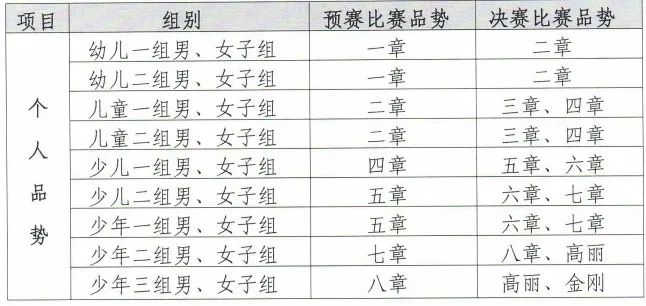 项目 组别 预赛比赛品势 决赛比赛品势
个人品势
幼儿一组男、女子组 一章 二章
幼儿二组男、女子组 一章 二章
儿童一组男、女子组 二章 三章、四章
儿童二组男、女子组 二章 三章、四章
少儿一组男、女子组 四章 五章、六章
少儿二组男、女子组 五章 六章、七章
少年一组男、女子组 五章 六章、七章
少年二组男、女子组 七章 八章、高丽
少年三组男、女子组 八章 高丽、金刚